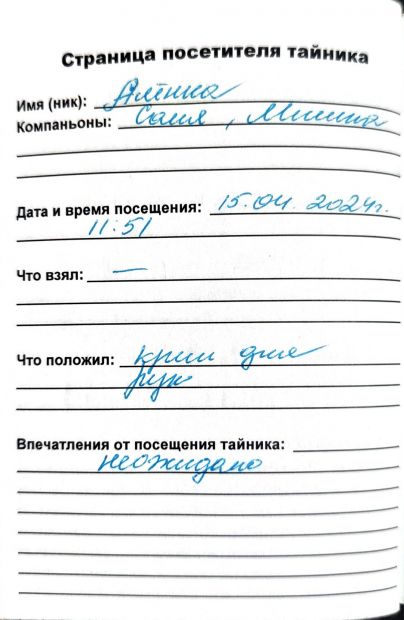 Страница посетителя тайника
Имя (ник): Алёнка
Компаньоны: Саня, Мишка
Дата и время посещения: 15.04.2024г.
11:51
Что взял: —
Что положил: крем для
рук
Впечатления от посещения тайника:
неожидано